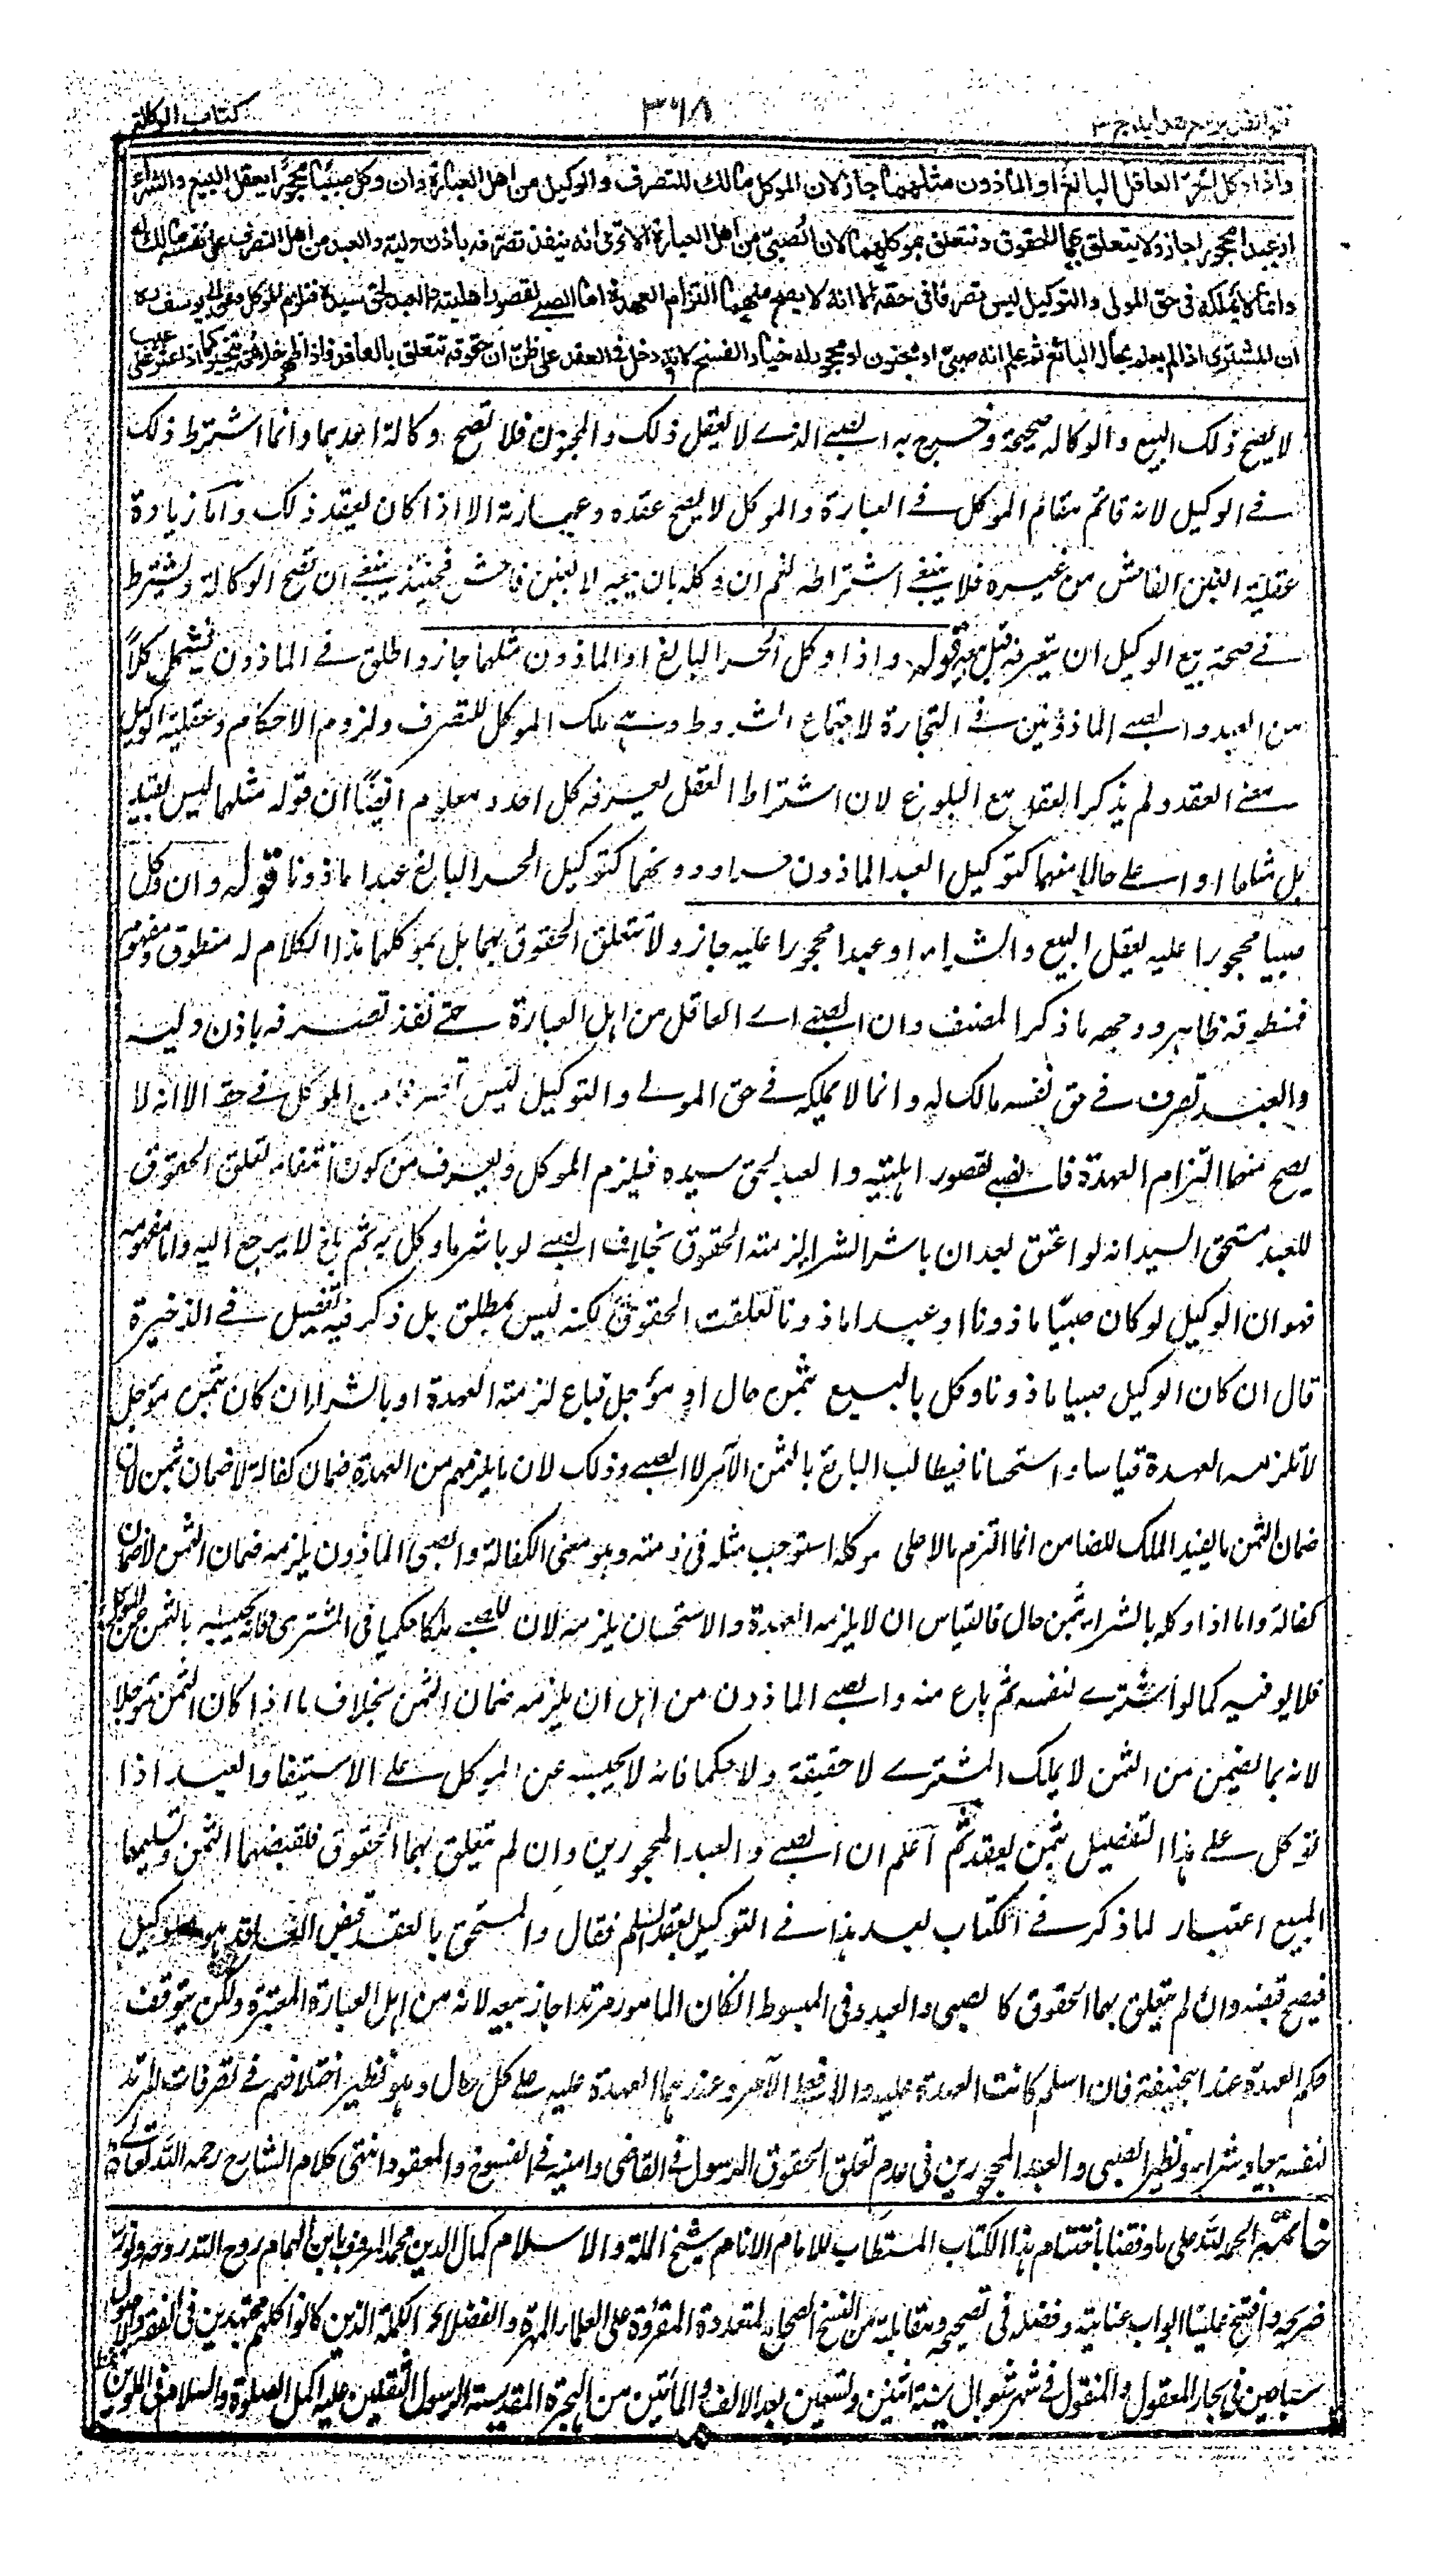 كتاب الوكالة
٣٦٨
فتح القدير مع هداية ج ٣
واذا وكل الحر العاقل البالغ او الماذون مثلهما جاز لان الموكل مالك للتصرف والوكيل من اهل العبارة وان وكل صبيا محجورا يعقل البيع والشراء
او عبدا محجورا جاز ولا يتعلق بهما الحقوق وتتعلق بموكلهما لان الصبي من اهل العبارة الا ترى انه ينفذ تصرفه باذن وليه والعبد من اهل التصرف على نفسه مالك له
وانما لا يملكه في حق المولى والتوكيل ليس تصرفا في حقه الا انه لا يصح منهما التزام العهدة اما الصبي لقصور اهليته والعبد لحق سيده فتلزم الموكل وعن ابي يوسف رح
ان المشتري اذا لم يعلم بحال البائع ثم علم انه صبي او مجنون او محجور له خيار الفسخ لانه دخل في العقد على ظن ان حقوقه تتعلق بالعاقد فاذا ظهر خلافه يتخير كما اذا عثر على عيب
لا يصح ذلك البيع والوكالة صحيحة وخرج به الصبي الذي لا يعقل ذلك والمجنون فلا تصح وكالة احدهما وانما اشترط ذلك
في الوكيل لانه قائم مقام الموكل في العبارة والموكل لا يصح عقده وعبارته الا اذا كان يعقد ذلك واما زيادة
عقلية الغبن الفاحش من غيره فلا ينبغي اشتراطه نعم ان وكله بان يبيع لا بغبن فاحش فحينئذ ينبغي ان تصح الوكالة ويشترط
في صحة بيع الوكيل ان يعرفه قبل بيعه قوله واذا وكل الحر البالغ او الماذون مثلهما جاز واطلق في الماذون فيشمل كلا
من العبد والصبي الماذونين في التجارة لاجتماع الشروط وهي ملك الموكل للتصرف ولزوم الاحكام وعقلية الوكيل
معنى العقد ولم يذكر العقل مع البلوغ لان اشتراط العقل يعرفه كل احد ومعلوم ايضا ان قوله مثلهما ليس بقيد
بل مثلهما او اعلى حالا منهما كتوكيل العبد الماذون حرا ودونهما كتوكيل الحر البالغ عبدا ماذونا قوله وان وكل
صبيا محجورا عليه يعقل البيع والشراء او عبدا محجورا عليه جاز ولا تتعلق الحقوق بهما بل بموكلهما هذا الكلام له منطوق ومفهوم
فمنطوقه ظاهر ووجهه ما ذكر المصنف وان الصبي اي العاقل من اهل العبارة حتى نفذ تصرفه باذن وليه
والعبد تصرف في حق نفسه مالك له وانما لا يملكه في حق المولى والتوكيل ليس تصرفا من الموكل في حقه الا انه لا
يصح منهما التزام العهدة فالصبي لقصور اهليته والعبد لحق سيده فيلزم الموكل ويعرف من كون انتفائه لتعلق الحقوق
للعبد مستحق السيد انه لو اعتق بعد ان باشر الشراء لزمته الحقوق بخلاف الصبي لو باشر ما وكل به ثم بلغ لا يرجع اليه واما مفهومه
فهو ان الوكيل لو كان صبيا ماذونا او عبدا ماذونا تعلقت الحقوق لكنه ليس بمطلق بل ذكر فيه تفصيل في الذخيرة
قال ان كان الوكيل صبيا ماذونا وكل بالبيع بثمن حال او مؤجل فباع لزمته العهدة او بالشراء ان كان بثمن مؤجل
لا تلزمه العهدة قياسا واستحسانا فيطالب البائع بالثمن الآمر لا الصبي وذلك لان ما يلزمه من العهدة ضمان كفالة لا ضمان ثمن لان
ضمان الثمن ما يفيد الملك للضامن انما التزم مالا على موكله استوجب مثله في ذمته وهو معنى الكفالة والصبي الماذون يلزمه ضمان الثمن لا ضمان
كفالة واما اذا وكله بالشراء بثمن حال فالقياس ان لا يلزمه العهدة والاستحسان يلزمه لان للصبي ملكا حكميا في المشترى فانه يحبسه بالثمن عن الموكل
فلا يوفيه كما لو اشترى لنفسه ثم باع منه والصبي الماذون من اهل ان يلزمه ضمان الثمن بخلاف ما اذا كان الثمن مؤجلا
لانه بما يضمن من الثمن لا يملك المشترى لا حقيقة ولا حكما فانه لا يحبسه عن الموكل على الاستيفا والعبد اذا
توكل على هذا التفصيل بثمن يعقد ثم اعلم ان الصبي والعبد المحجورين وان لم تتعلق بهما الحقوق فلقبضهما الثمن وتسليمهما
المبيع اعتبار لما ذكر في الكتاب بعد هذا في التوكيل بعقد السلم فقال والمستحق بالعقد قبض العاقد وهو الوكيل
فيصح قبضه وان لم تتعلق بهما الحقوق كالصبي والعبد وفي المبسوط ان كان المامور مرتدا جاز بيعه لانه من اهل العبارة المعتبرة ولكن يتوقف
حكم العهدة عند ابيحنيفة فان اسلم كانت العهدة عليه والا فعلى الآمر وعندهما العهدة عليه على كل حال وهو نظير اختلافهم في تصرفات المرتد
لنفسه بيعا وشراء ونظير الصبي والعبد المحجورين في عدم تعلق الحقوق الرسول في القاضي وامينه في الفسوخ والعقود انتهى كلام الشارح رحمه الله تعالى
خاتمة الحمد لله على ما وفقنا باختتام هذا الكتاب المستطاب للامام الانام شيخ الملة والاسلام كمال الدين محمد المعروف بابن الهمام روح الله روحه ونور
ضريحه وافتتح علينا ابواب عنايته وفضله في تصحيحه ومقابلته من النسخ الصحاح المتعددة المقروة على العلماء المهرة والفضلاء الكملة الذين كانوا كلهم مجتهدين في الفقه والاصول
سباحين في بحار المعقول والمنقول في شهر شوال سنة اثنين وتسعين بعد الالف والمأتين من الهجرة المقدسة لرسول الثقلين عليه اكمل الصلوة والسلام في الملوين